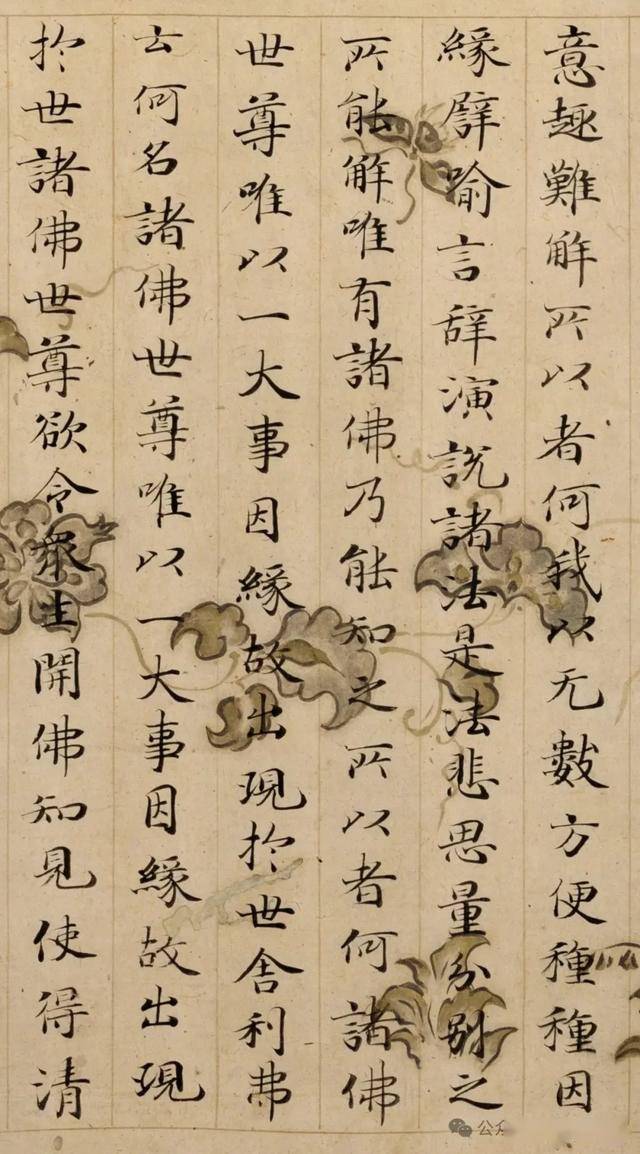 意趣難解所以者何我以无數方便種種因
緣譬喻言辞演說諸法是法悲思量分別之
所能解唯有諸佛乃能知之所以者何諸佛
世尊唯以一大事因緣故出現於世舍利弗
云何名諸佛世尊唯以一大事因緣故出現
於世諸佛世尊欲令眾生開佛知見使得清
公众